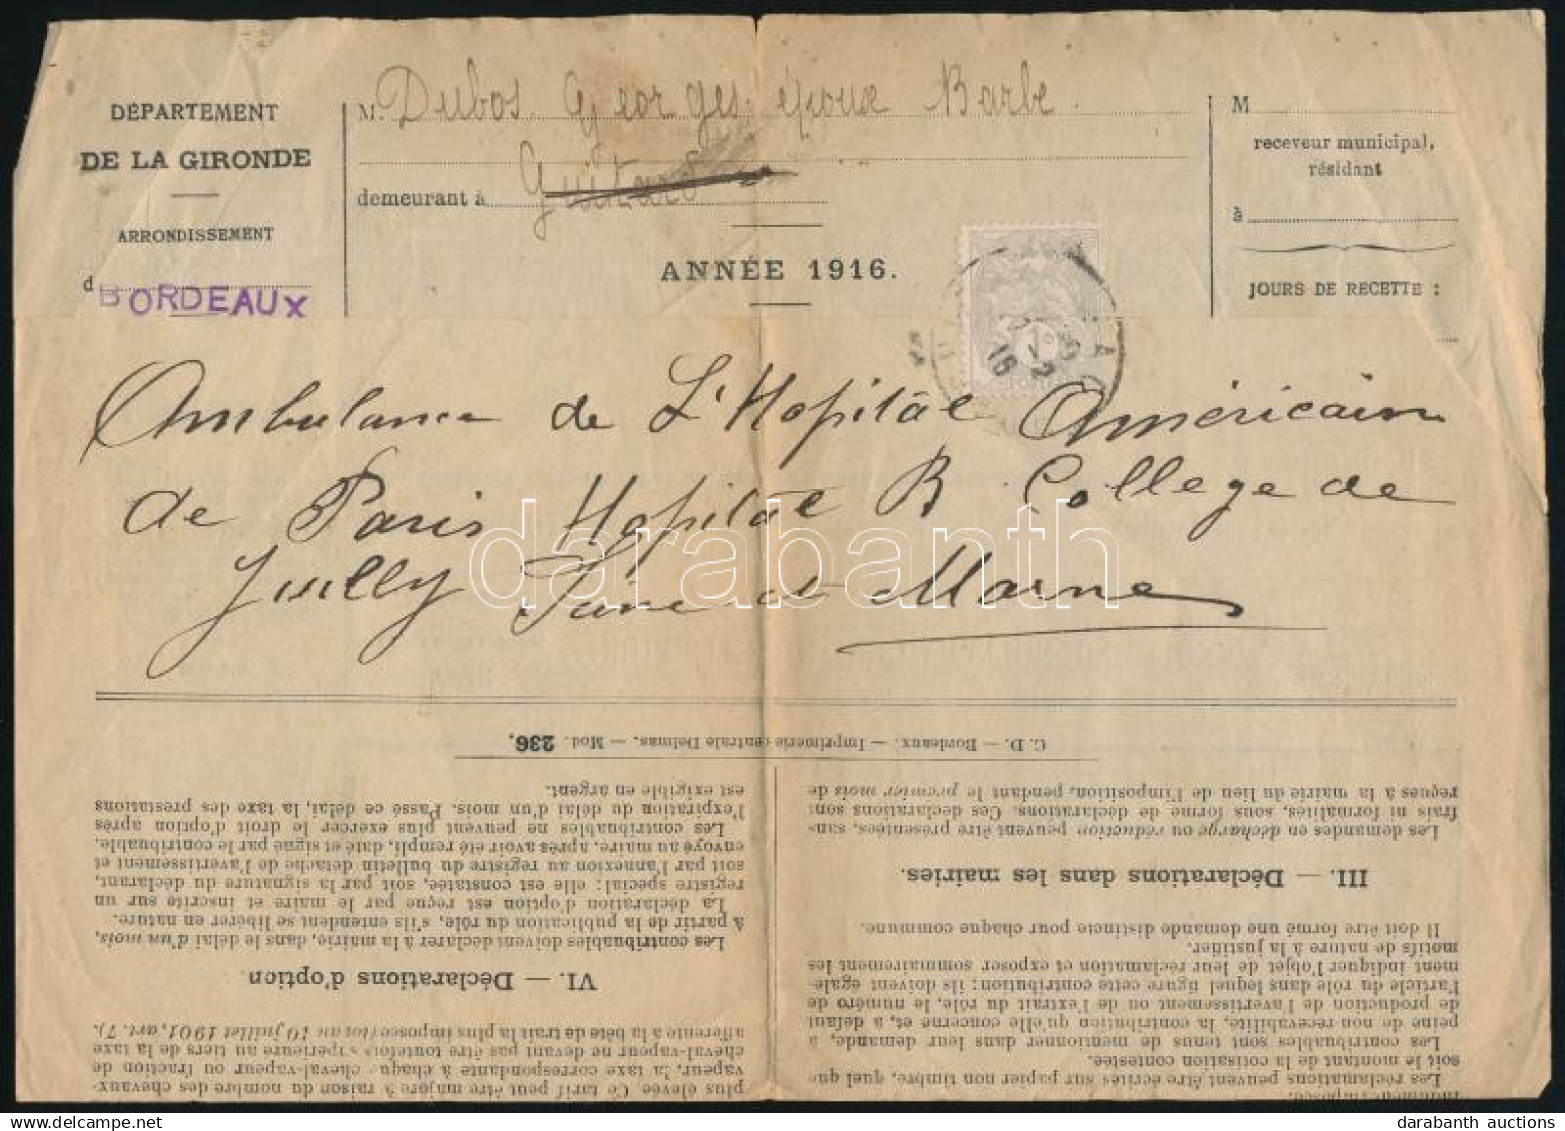 DÉPARTEMENT
DE LA GIRONDE
ARRONDISSEMENT
d
BORDEAUX
M. Dubos Georges époux Barbe
demeurant à Guitard
ANNÉE 1916.
M
receveur municipal,
résidant
à
JOURS DE RECETTE :
1c
Ambulance de L'Hopitâl Américain
de Paris Hopitâl B College de
Juilly Seine et Marne
darabanth
C. D. — Bordeaux. — Imprimerie centrale Delmas. — Mod. 236.
plus élevée. Ce tarif peut être majoré à raison du nombre des chevaux-
vapeur, la taxe correspondante à chaque cheval-vapeur ou fraction de
cheval-vapeur ne devant pas être toutefois supérieure au tiers de la taxe
afférente à la bête de trait la plus imposée (loi du 10 juillet 1901, art. 7).
VI. — Déclarations d'option
Les contribuables doivent déclarer à la mairie, dans le délai d'un mois,
à partir de la publication du rôle, s'ils entendent se libérer en nature.
La déclaration d'option est reçue par le maire et inscrite sur un
registre spécial; elle est constatée, soit par la signature du déclarant,
soit par l'annexion au registre du bulletin détaché de l'avertissement et
envoyé au maire, après avoir été rempli, daté et signé par le contribuable.
Les contribuables ne peuvent plus exercer le droit d'option après
l'expiration du délai d'un mois. Passé ce délai, la taxe des prestations
est exigible en argent.
Les réclamations peuvent être écrites sur papier non timbré, quel que
soit le montant de la cotisation contestée.
Les contribuables sont tenus de mentionner dans leur demande, à
peine de non-recevabilité, la contribution qu'elle concerne et, à défaut
de production de l'avertissement ou de l'extrait du rôle, le numéro de
l'article du rôle dans lequel figure cette contribution; ils doivent égale-
ment indiquer l'objet de leur réclamation et exposer sommairement les
motifs de nature à la justifier.
Il doit être formé une demande distincte pour chaque commune.
III. — Déclarations dans les mairies.
Les demandes en décharge ou réduction peuvent être présentées, sans
frais ni formalités, sous forme de déclarations. Ces déclarations sont
reçues à la mairie du lieu de l'imposition, pendant le premier mois de
darabanth auctions